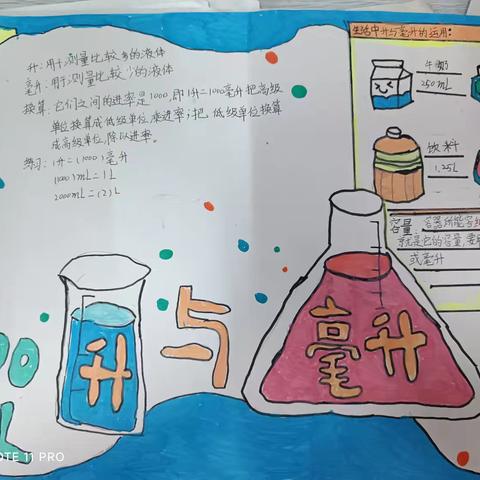 升：用于测量比较多的液体
毫升：用于测量比较少的液体
换算：它们之间的进率是1000，即1升=1000毫升把高级
单位换算成低级单位，乘进率；把低级单位换算
成高级单位，除以进率。
练习：1升=(1000)毫升
(1000)mL=1L
2000mL=(2)L
生活中升与毫升的运用：
牛奶
250mL
饮料
1.25L
容量：容器所能容纳
就是它的容量，要
或毫升
升
与
毫升
00
L
OTE 11 PRO